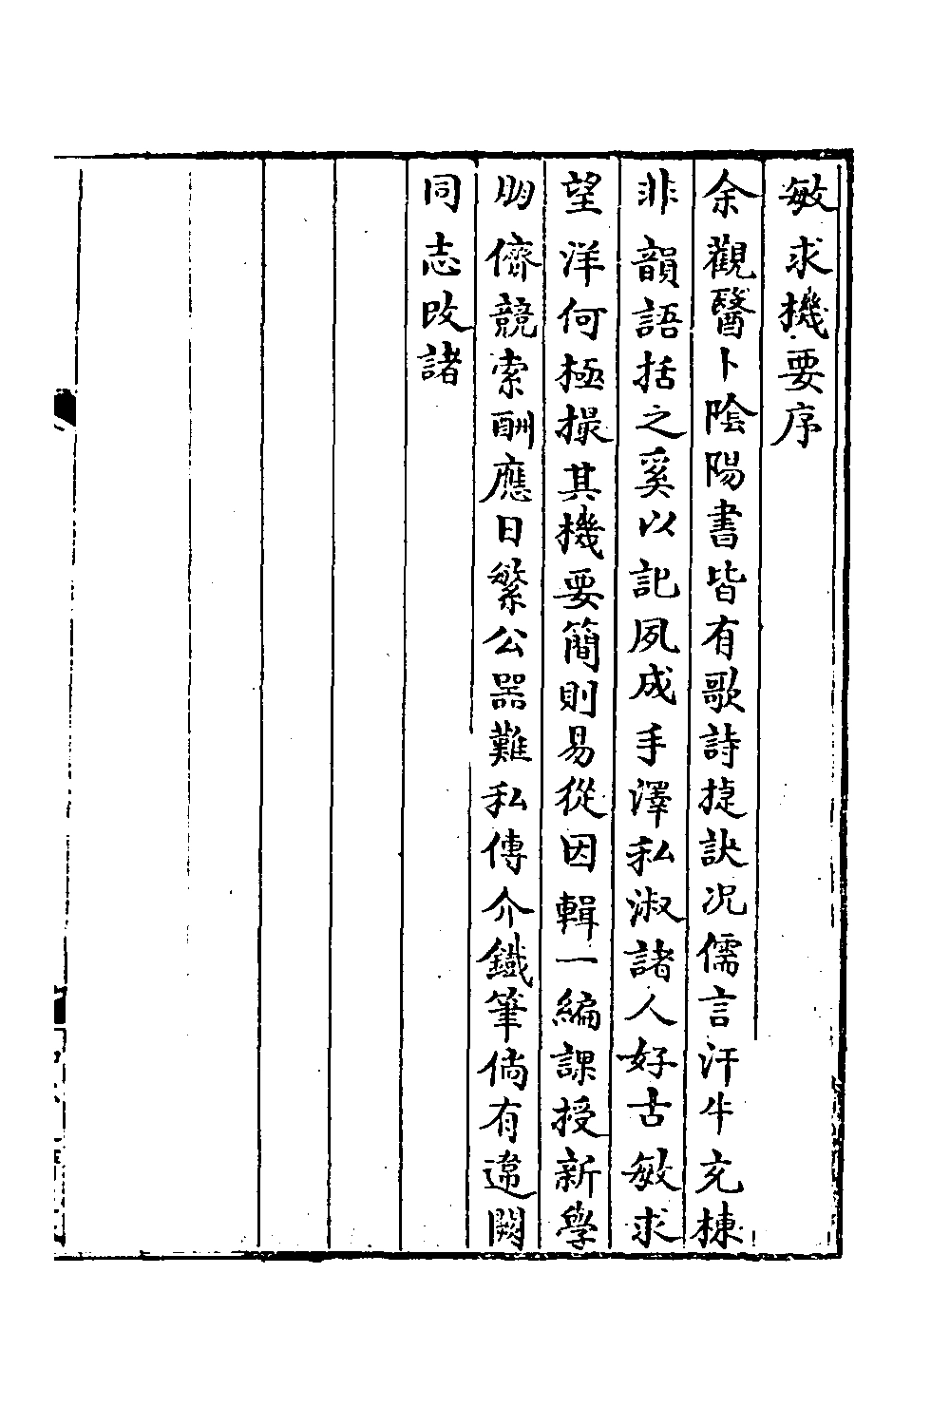 敏求機要序
余觀醫卜陰陽書皆有歌詩捷訣况儒言汗牛充棟
非韻語括之奚以記夙成手澤私淑諸人好古敏求
望洋何極操其機要簡則易從因輯一編課授新學
朋儕競索酬應日繁公器難私傳介鐵筆倘有遺闕
同志改諸